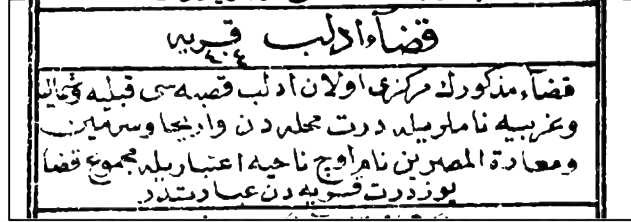 قضاء ادلب قريه
٤٠٤
قضاء مذكورك مركزى اولان ادلب قصبه سى قبليه وشماليه
وغربيه ناملريله درت محله دن واريحا وسرمين
ومعارة المصرين نام اوچ ناحيه اعتباريله مجموع قضا
يوز درت قريه دن عبارتدر